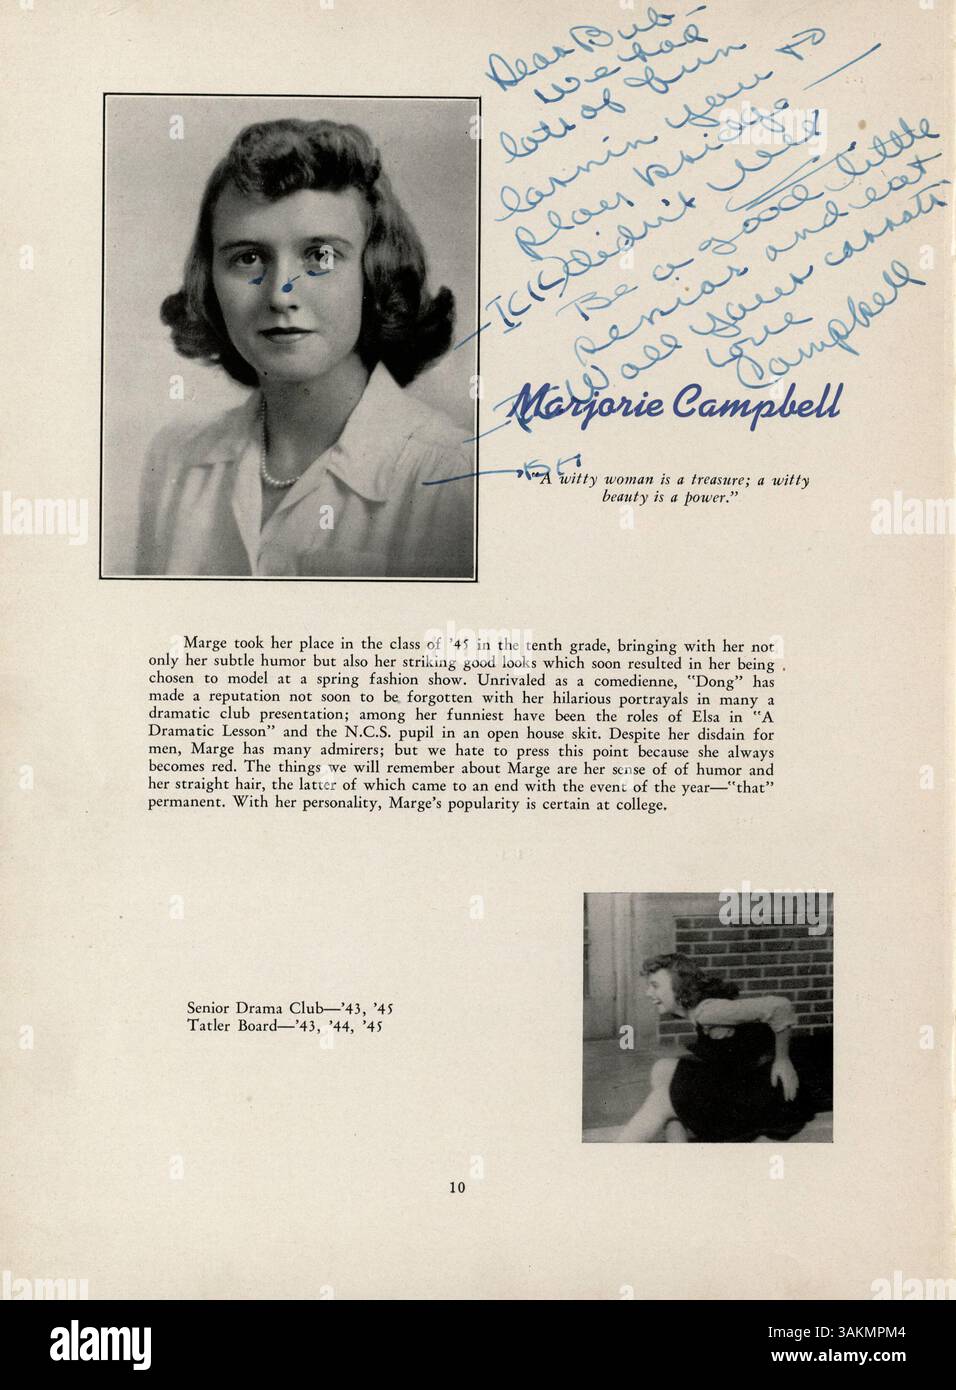 Dear Bub-
we had
lots of fun
larnin you to
play bridge —
didn't we!
Be a good little
senior and eat
all your carrots
Love
Campbell
Marjorie Campbell
"A witty woman is a treasure; a witty
beauty is a power."
Marge took her place in the class of '45 in the tenth grade, bringing with her not
only her subtle humor but also her striking good looks which soon resulted in her being
chosen to model at a spring fashion show. Unrivaled as a comedienne, "Dong" has
made a reputation not soon to be forgotten with her hilarious portrayals in many a
dramatic club presentation; among her funniest have been the roles of Elsa in "A
Dramatic Lesson" and the N.C.S. pupil in an open house skit. Despite her disdain for
men, Marge has many admirers; but we hate to press this point because she always
becomes red. The things we will remember about Marge are her sense of of humor and
her straight hair, the latter of which came to an end with the event of the year—"that"
permanent. With her personality, Marge's popularity is certain at college.
Senior Drama Club—'43, '45
Tatler Board—'43, '44, '45
10
alamy
Image ID: 3AKMPM4
www.alamy.com